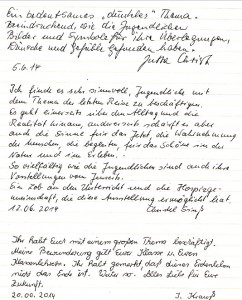 Ein bedeutsames, "dunkles" Thema.
Beeindruckend, wie die Jugendlichen
Bilder und Symbole für ihre Überzeugungen,
Wünsche und Gefühle gefunden haben.
5.6.14 Jutta
Ich finde es sehr sinnvoll, Jugendliche mit
dem Thema der letzten Reise zu beschäftigen.
Es geht einerseits über den Alltag und die
Realität hinaus, andererseits schärft es aber
auch die Sinne für das Jetzt, die Wahrnehmung
der Menschen, die begleiten, für das Schöne in der
Natur und im Erleben.
So vielfältig wie die Jugendlichen sind auch ihre
Vorstellungen vom Jenseits.
Ein Lob an den Unterricht und die Hospizge-
meinschaft, die diese Ausstellung ermöglicht hat.
17.06.2014
Ihr habt Euch mit einem großen Thema beschäftigt.
Meine Bewunderung gilt Eurer Klasse u. Euren
Ihr habt gemerkt, dass dieses Erdenleben
nicht das Ende ist. Weiter so. Alles Gute für Eure
Zukunft.
20.09.2014 J. Krauß